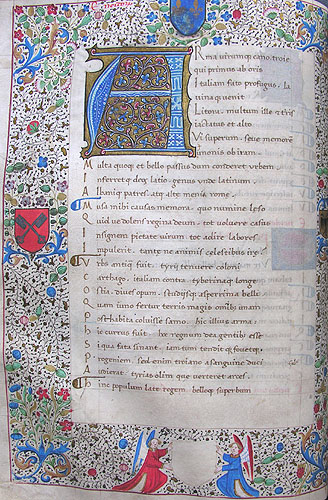 Arma virumque cano, troie
qui primus ab oris
Italiam fato profugus, la
uina quenit
Litora, multum ille & tris
iactatus et alto
Vi superum, seue memorē
iunonis ob iram.
Multa quoq; et bello passus dum conderet vrbem
Inferretq; deos latio. genus vnde latinum
Albaniq; patres, atq; alte menia rome.
Musa mihi causas memora, quo numine leso
Quid ue dolens regina deum, tot voluere casus
Insignem pietate virum, tot adire labores
Impulerit. tantene animis celestibus ire
Vrbs antiqua fuit, tyrii tenuere coloni
Carthago, italiam contra, tyberinaq; longe
Ostia, diues opum, studiisq; asperrima belli
Quam iuno fertur terris magis omnibus unam
Posthabita coluisse samo. hic illius arma.
Hic currus fuit. hoc regnum dea gentibus esse
Si qua fata sinant, iam tum tendit q; fouetq;
Progeniem sed enim troiano a sanguine duci
Audierat, tyrias olim que verteret arces.
Hinc populum late regem, belloq; superbum